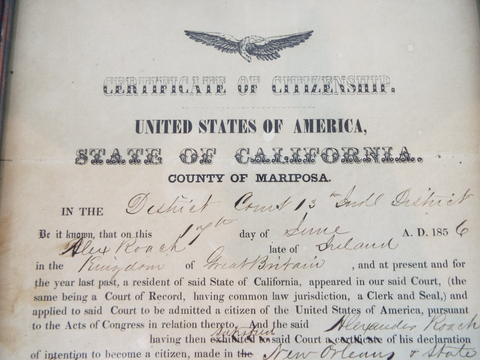 CERTIFICATE OF CITIZENSHIP.
UNITED STATES OF AMERICA,
STATE OF CALIFORNIA.
COUNTY OF MARIPOSA.
IN THE District Court 13th Judl District
Be it known, that on this 17th day of June A. D. 1856
Alex Roach late of Ireland
in the Kingdom of Great Britain , and at present and for
the year last past, a resident of said State of California, appeared in our said Court, (the
same being a Court of Record, having common law jurisdiction, a Clerk and Seal,) and
applied to said Court to be admitted a citizen of the United States of America, pursuant
to the Acts of Congress in relation thereto, And the said Alexander Roach
having then exhibited to said Court a certificate of his declaration
of intention to become a citizen, made in the New Orleans State